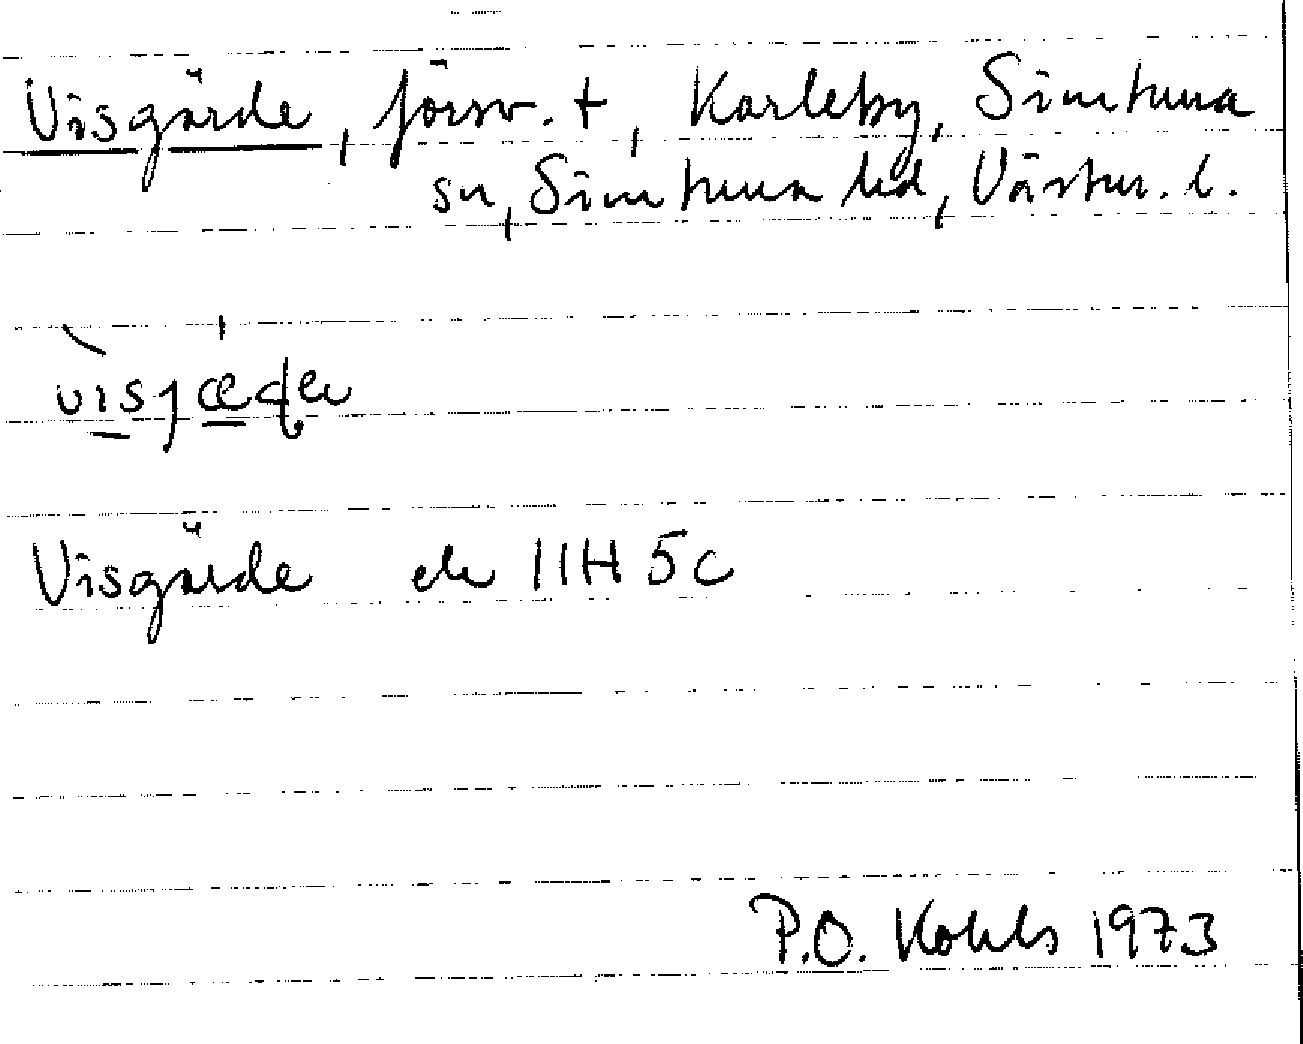 Visgärde, försv. t, Karleby, Simtuna
sn, Simtuna hd, Västm. l.
Visgärde ek 11H 5c
P.O. Kohls 1973